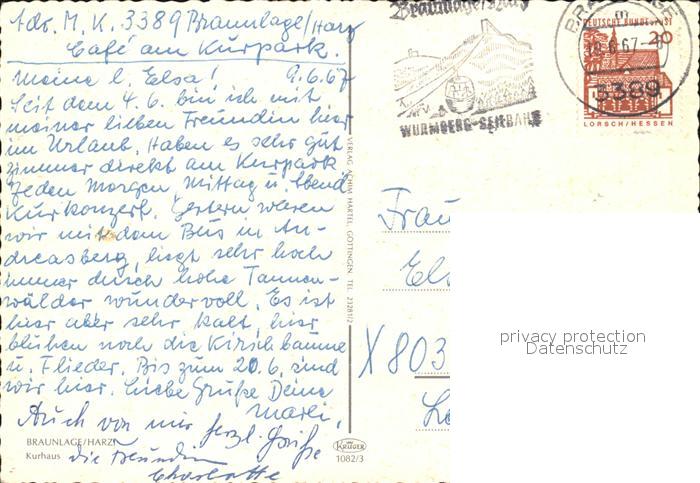 Adr. M. K. 3389 Braunlage/Harz
Café am Kurpark.
Meine l. Elsa! 9.6.67
Seit dem 4.6. bin ich mit
meiner lieben Freundin hier
im Urlaub. Haben es sehr gut
Zimmer direkt am Kurpark
Jeden Morgen Mittag u. Abend
Kurkonzert. Gestern waren
wir mit dem Bus in An-
dreasberg, liegt sehr hoch
immer durch hohe Tannen-
wälder wundervoll. Es ist
hier aber sehr kalt, hier
blühen noch die Kirschbäume
u. Flieder. Bis zum 20.6. sind
wir hier. Liebe Grüße Deine
Marei.
Auch von mir herzl. Grüße
die Freundin
Charlotte
BRAUNLAGE/HARZ
Kurhaus
VERLAG ACHIM HARTEL, GÖTTINGEN TEL. 23281/2
KRÜGER
1082/3
Braunlage/Harz
WURMBERG-SEILBAHN
BRAUNLAGE
m
-9.6.67-8
3389
DEUTSCHE BUNDESPOST
20
LORSCH/HESSEN
Frau
Els
X 803
privacy protection
Datenschutz